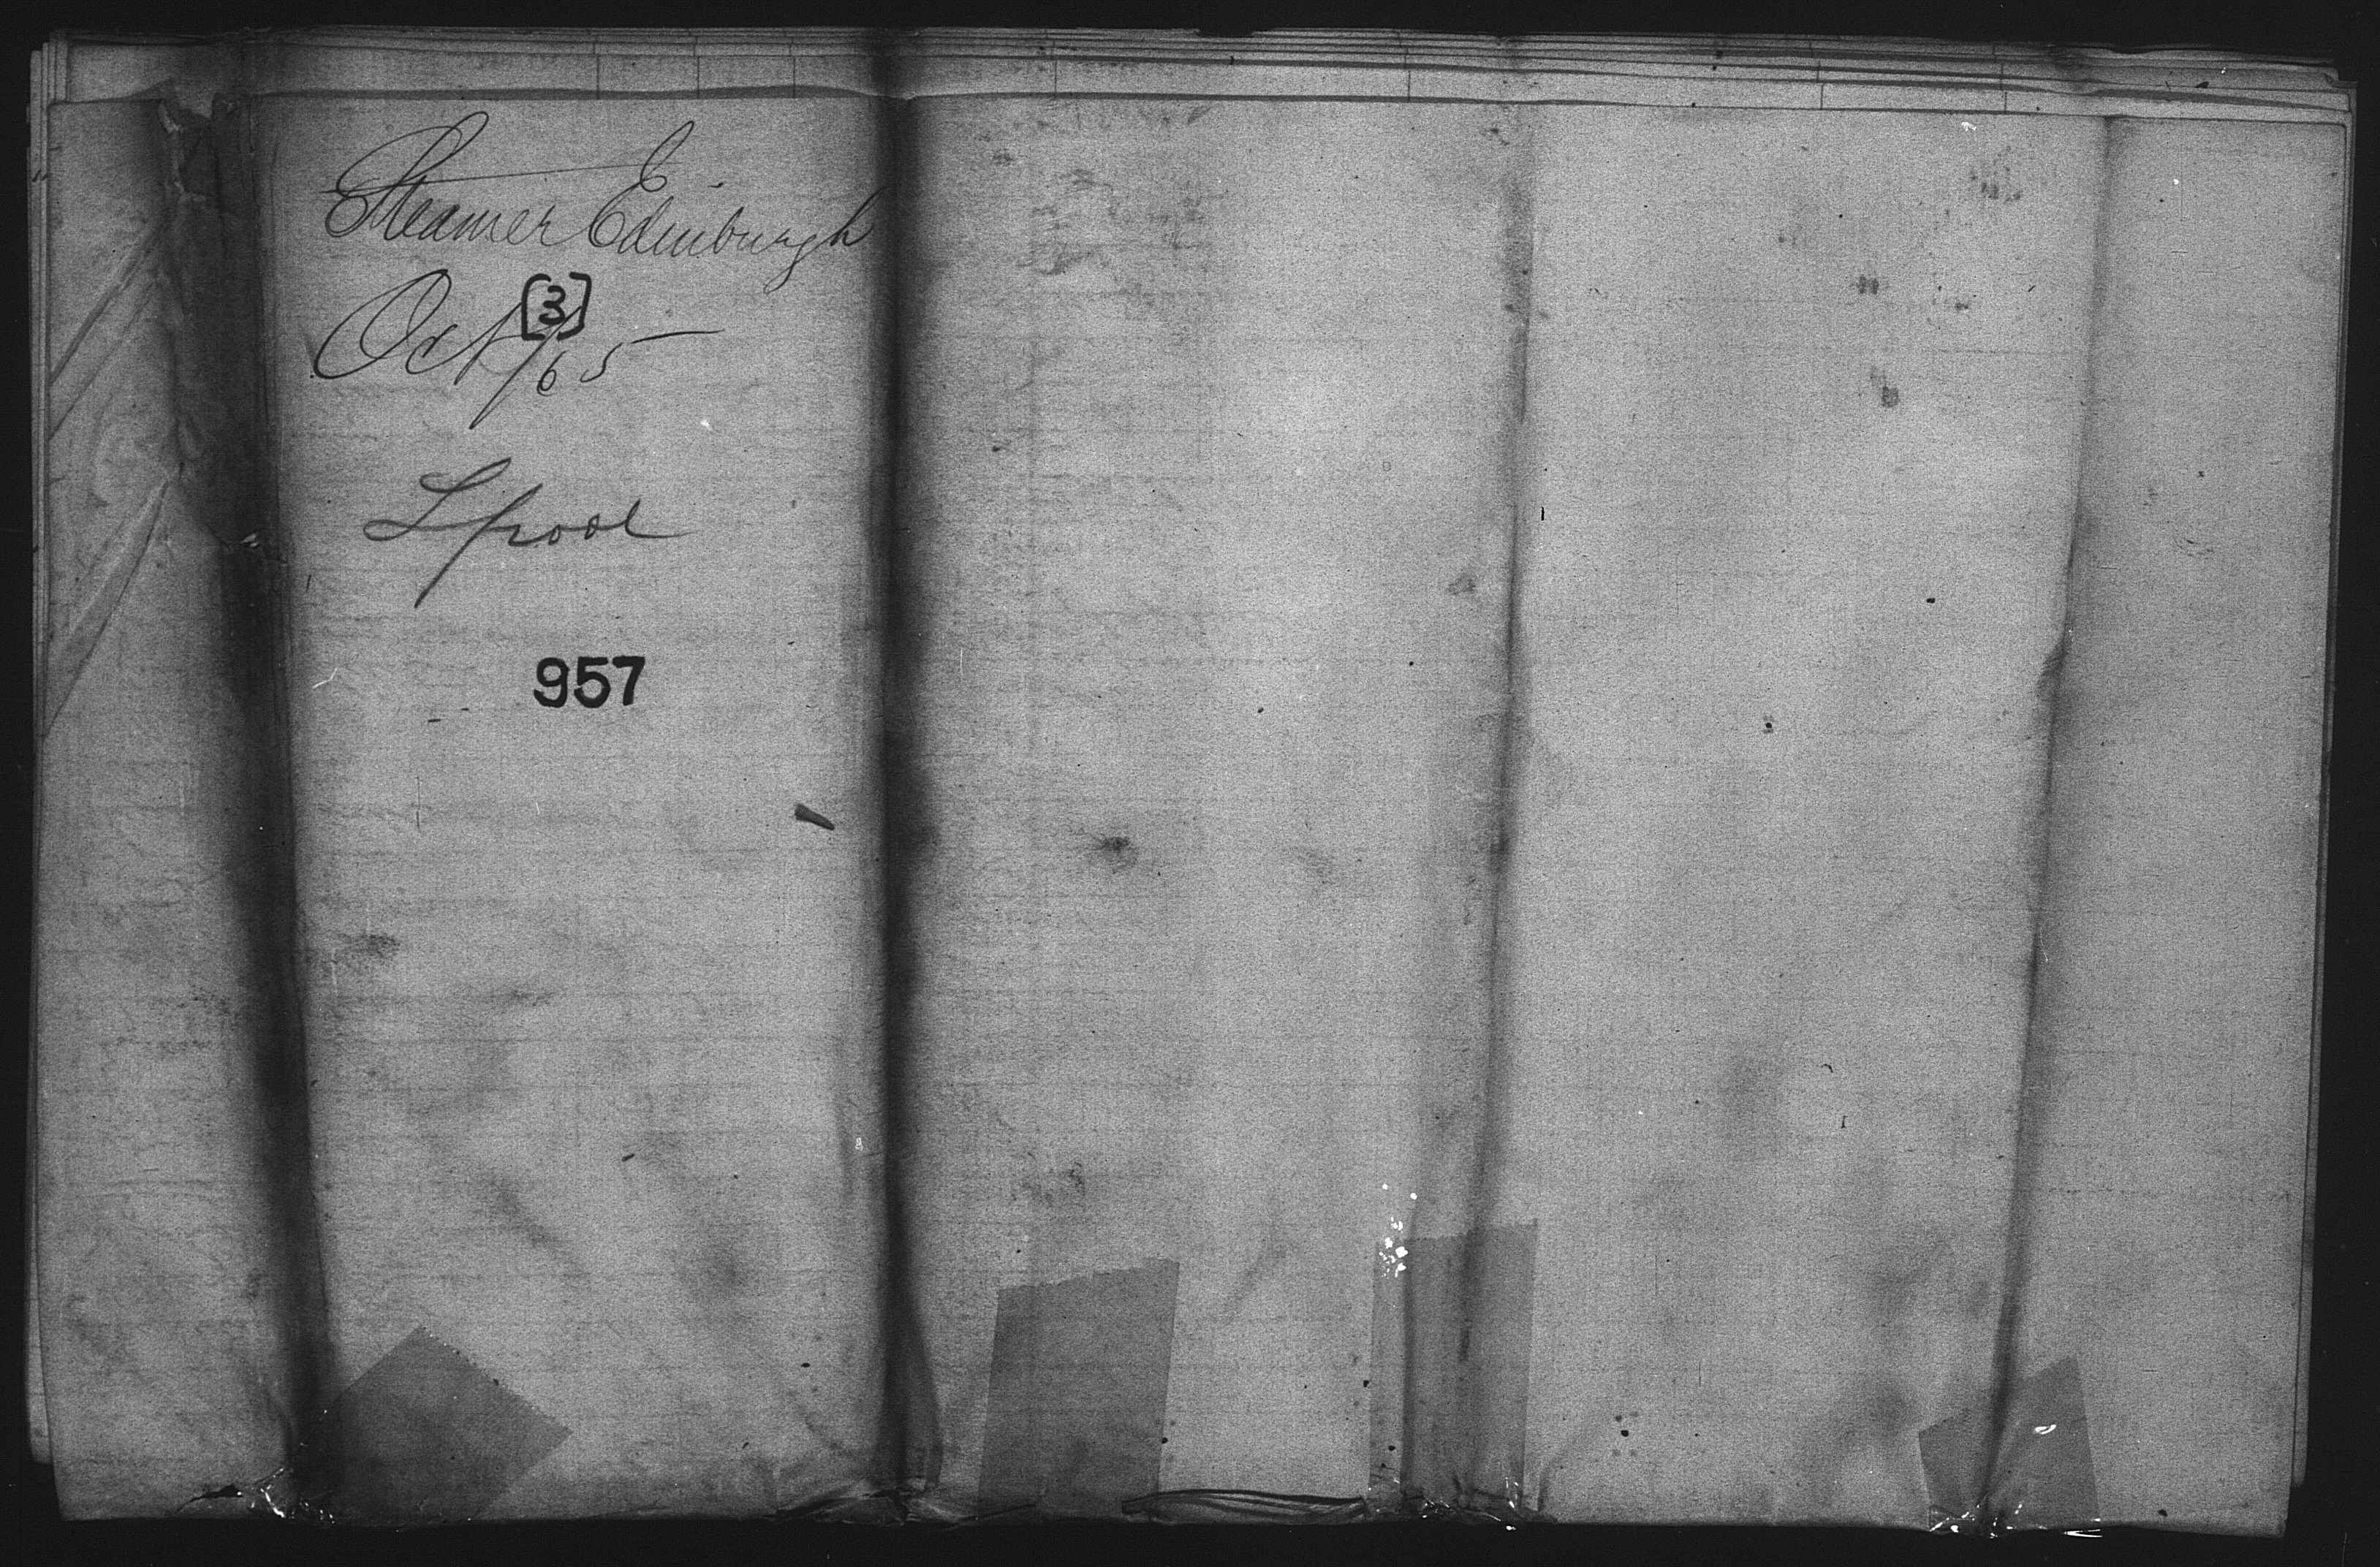 Steamer Edinburgh
Oct [3] /65
Lpool
957